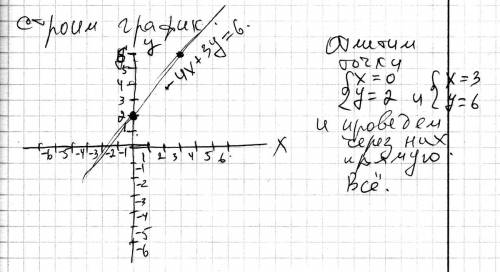 строим график.
y
-4x+3y=6.
6
5
4
3
2
1
-6 -5 -4 -3 -2 -1 1 2 3 4 5 6
x
-1
-2
-3
-4
-5
-6
Отметим
точки
{x=0 y=2 и {x=3 y=6
и проведем
через них
прямую.
Всё.